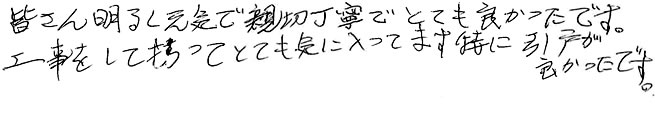 皆さん明るく元気で親切丁寧でとても良かったです。
工事をして携ってとても気に入ってます特に引戸が
良かったです。